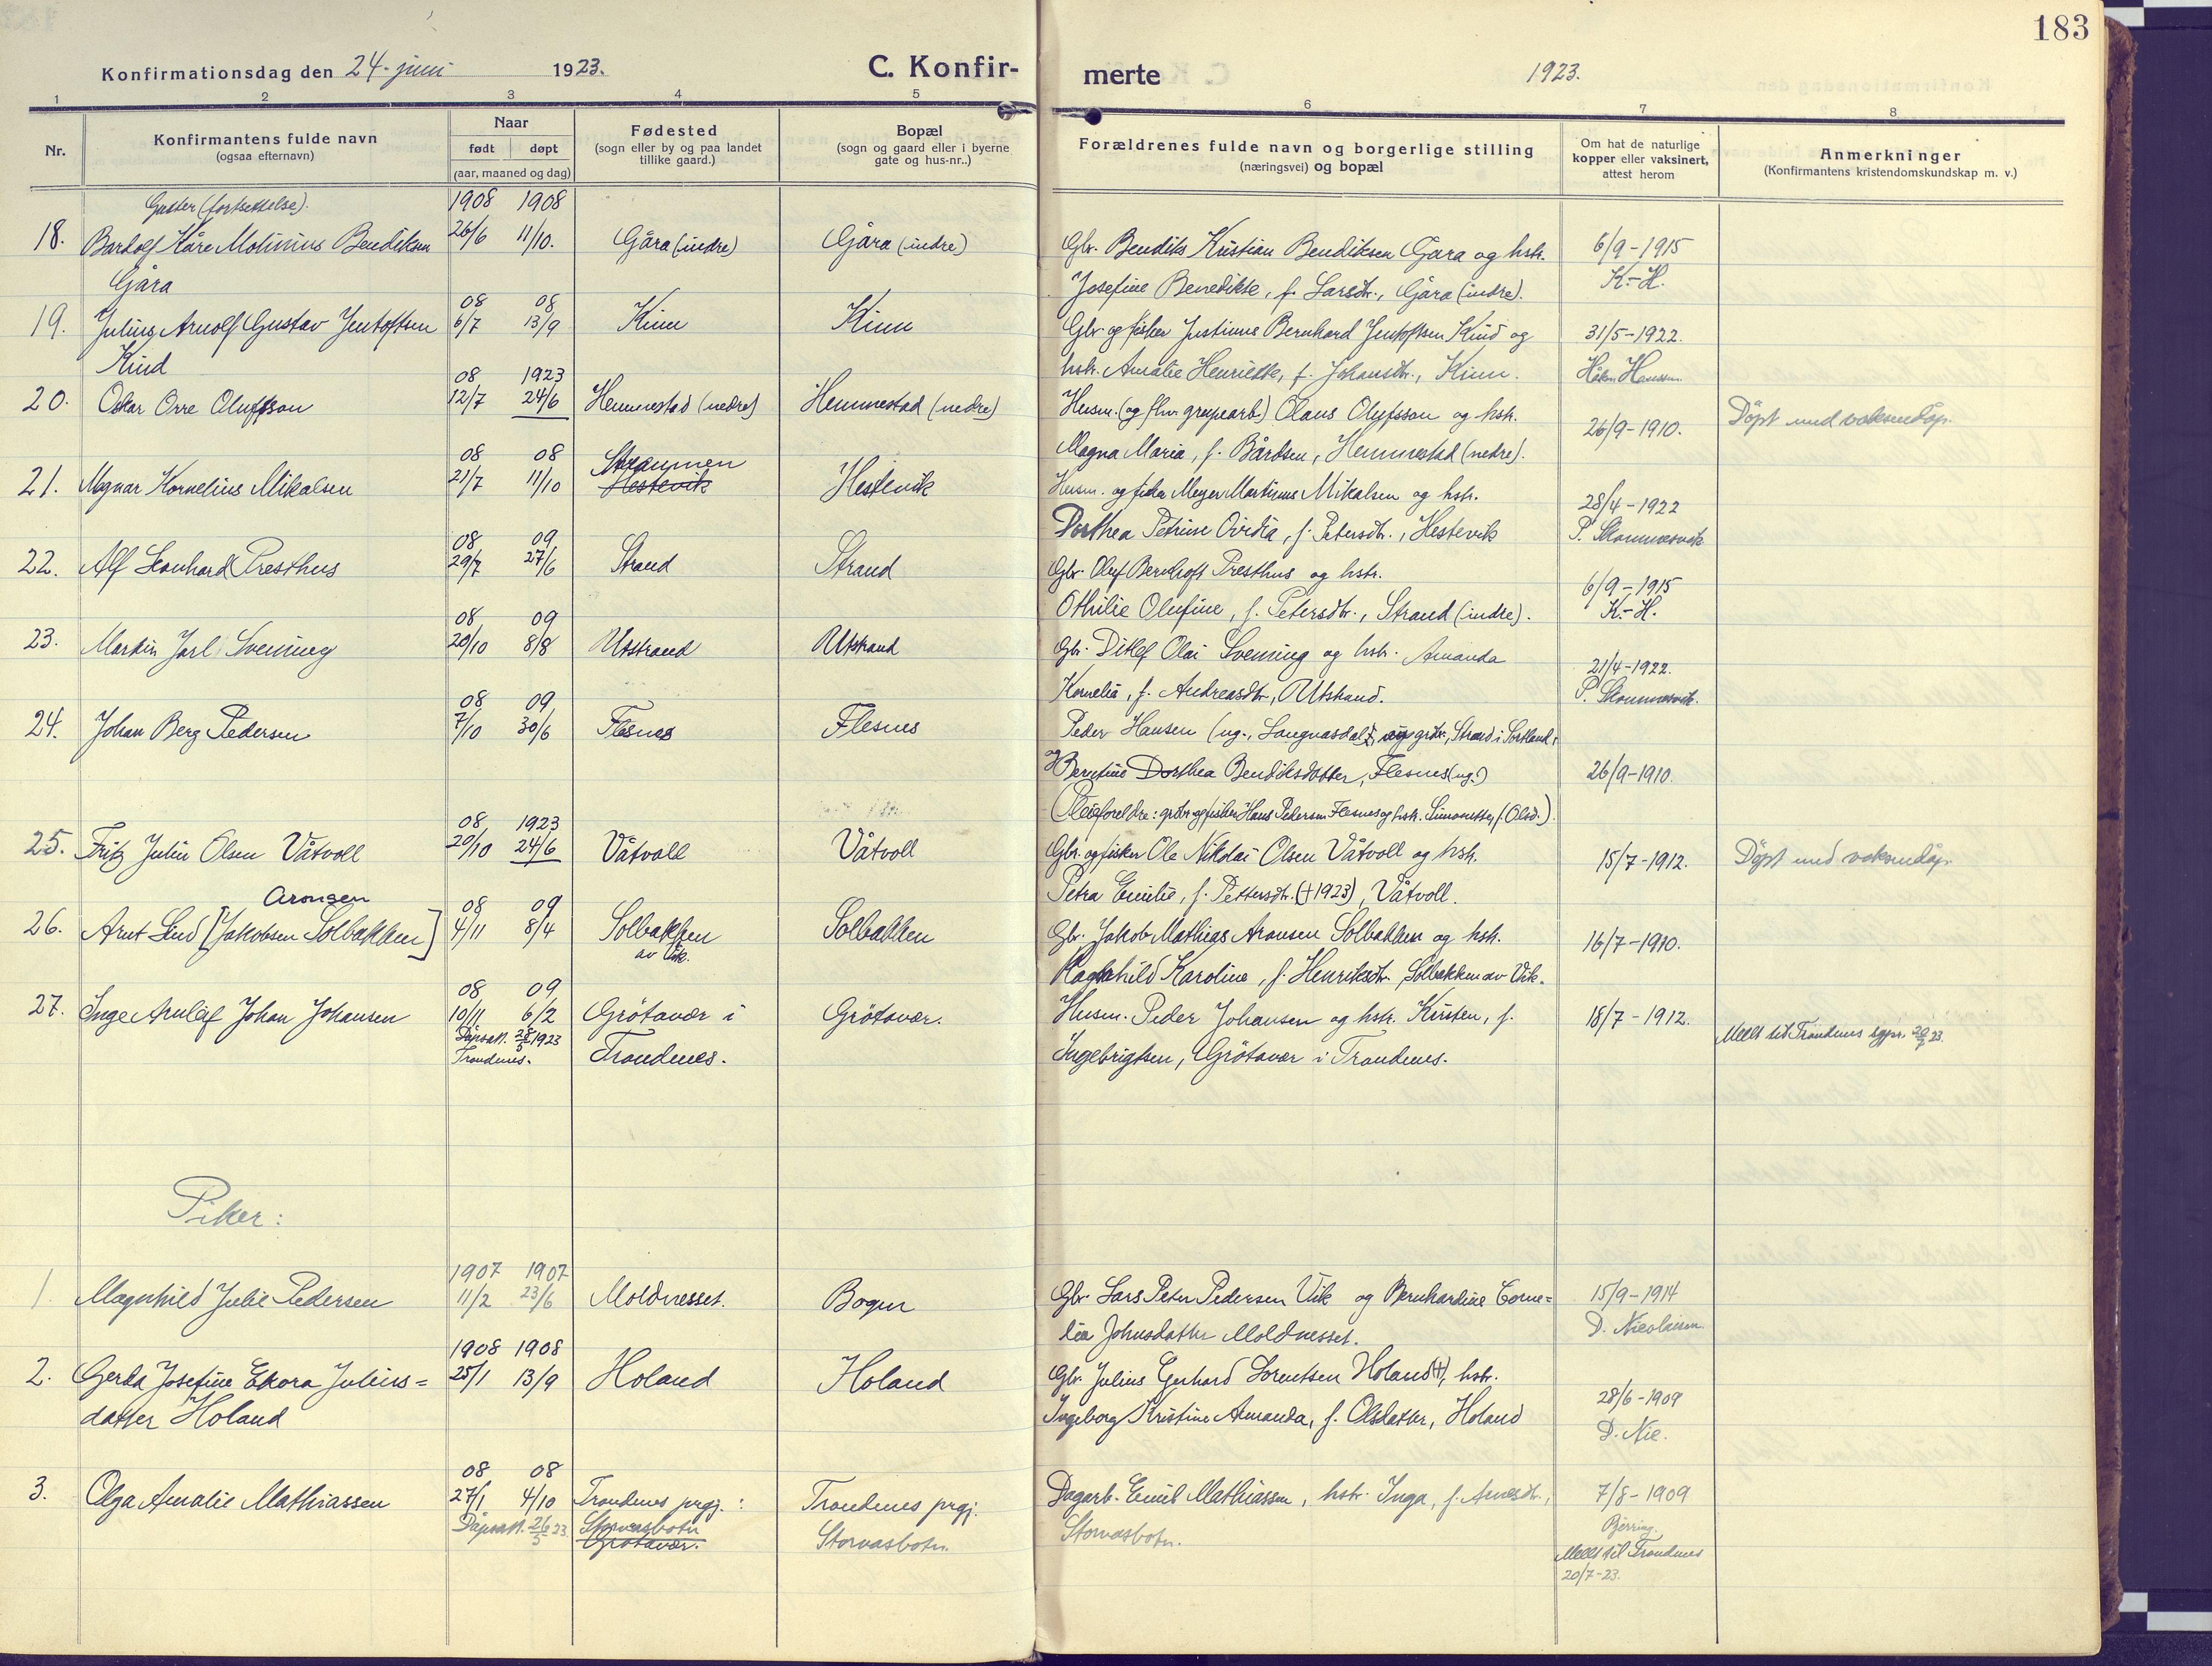 183
Konfirmationsdag den 24. juni 1923. C. Konfirmerte 1923.
1 2 3 4 5 6 7 8
Nr.
Konfirmantens fulde navn
(ogsaa efternavn)
Naar
født døpt
(aar, maaned og dag)
Fødested
(sogn eller by og paa landet
tillike gaard.)
Bopæl
(sogn og gaard eller i byerne
gate og hus-nr..)
Forældrenes fulde navn og borgerlige stilling
(næringsvei) og bopæl
Om hat de naturlige
kopper eller vaksinert,
attest herom
Anmerkninger
(Konfirmantens kristendomskundskap m. v.)
Gutter (fortsettelse). 1908 1908
18. Bardolf Kåre Motinius Bendiksen 26/6 11/10. Gåra (indre) Gåra (indre) Gbr. Bendiks Kristian Bendiksen Gåra og hstr. 6/9-1915
Gåra Josefine Benedikte, f. Larsdtr., Gåra (indre). K.-H.
08 08
19. Julius Arnolf Gustav Jentoftsen 6/7 13/9 Kinn Kinn Gbr. og fisker Justinus Bernhard Jentoftsen Kind og 31/5-1922.
Kind hstr. Amalie Henriette, f. Johansdtr., Kinn. Håkon Hanssen
08 1923
20. Oskar Orre Olufsson 12/7 24/6 Hemmestad (nedre) Hemmestad (nedre) Husm. (og fhv. grupearb.) Olaus Olufsson og hstr. 26/9-1910. Döpt med voksendåp.
Magna Maria, f. Bårdsen, Hemmestad (nedre).
08 08 Straumen
21. Magnar Kornelius Mikalsen 21/7 11/10 Hestevik Hestevik Husm. og fisker Meyer Martinus Mikalsen og hstr. 28/4-1922
Dorthea Petrine Ovidia, f. Petersdtr., Hestevik P. Skommesvik
08 09
22. Alf Leonhard Presthus 29/7 27/6 Strand Strand Gbr. Oluf Bernhoft Presthus og hstr. 6/9-1915
Othilie Olufine, f. Petersdtr., Strand (indre). K.-H.
08 09
23. Martin Jarl Svenning 20/10 8/8 Utstrand Utstrand Gbr. Ditlef Olai Svenning og hstr. Amanda 21/4-1922.
Kornelia, f. Andreasdtr, Utstrand. P. Skommesvik.
08 09
24. Johan Berg Pedersen 7/10 30/6 Flesnes Flesnes Peder Hansen (ug., Langvasdal, grbr., Strand i Sortland,
og Berntine Dorthea Bendiksdatter, Flesnes (ug.) 26/9-1910.
(Pleieforeldre: grbr. og fisker Hans Pedersen Flesnes og hstr. Simonette, f. Olsd.).
08 1923
25. Fritz Julin Olsen Våtvoll 29/10 24/6 Våtvoll Våtvoll Gbr. og fisker Ole Nikolai Olsen Våtvoll og hstr. 15/7-1912. Döpt med voksendåp.
Petra Emilie, f. Pettersdtr. (†1923), Våtvoll.
Aronsen 08 09
26. Arnt Lind [Jakobsen Solbakken] 4/11 8/4 Solbakken Solbakken Gbr. Jakob Mathias Aronsen Solbakken og hstr. 16/7-1910.
av Vik. Ragnhild Karoline, f. Henriksdtr. Solbakken av Vik.
08 09
27. Inge Arnleif Johan Johansen 10/11 6/2 Grötavær i Grötavær. Husm. Peder Johansen og hstr. Kirsten, f. 18/7-1912.
Dåpsatt. 28/5 1923 Trondenes. Trondenes. Ingebrigtsen, Grötavær i Trondenes. Meldt til Trondenes sgpr. 20/7 23.
Piker:
1907 1907
1 Magnhild Julie Pedersen 11/2 23/6 Moldnesset. Bogen Gbr. Lars Peter Pedersen Vik og Bernhardine Corne=
lia Johnsdatter Moldnesset. 15/9-1914 D. Nicolaisen.
1908 1908
2. Gerda Josefine Ekora Julius= 25/1 13/9 Holand Holand Gbr. Julius Gerhard Lorentsen Holand (†), hstr.
datter Holand Ingeborg Kristine Amanda, f. Olsdatter, Holand 28/6-1909 D. Nic.
08 08
3. Olga Amalie Mathiassen 27/1 4/10 Trondenes prgj.: Trondenes prgj. Dagarb. Emil Mathiassen, hstr. Inga, f. Arnesdtr., 7/8-1909
Dåpsatt. 26/5 23. Storvasbotn Storvasbotn. Storvasbotn. Bjerring.
Grötavær. Meldt til Trondenes
20/7-23.